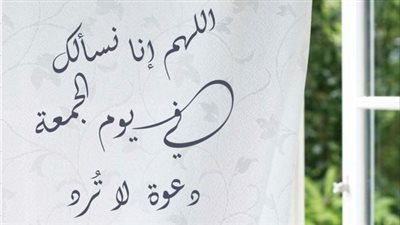 اللهم إنا نسألك
في يوم الجمعة
دعوة لا تُرد